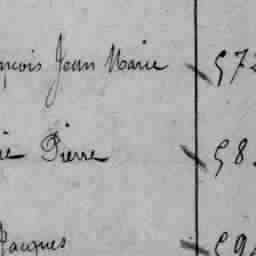 nçois Jean Marie 572
ie Pierre 58
Jacques 59